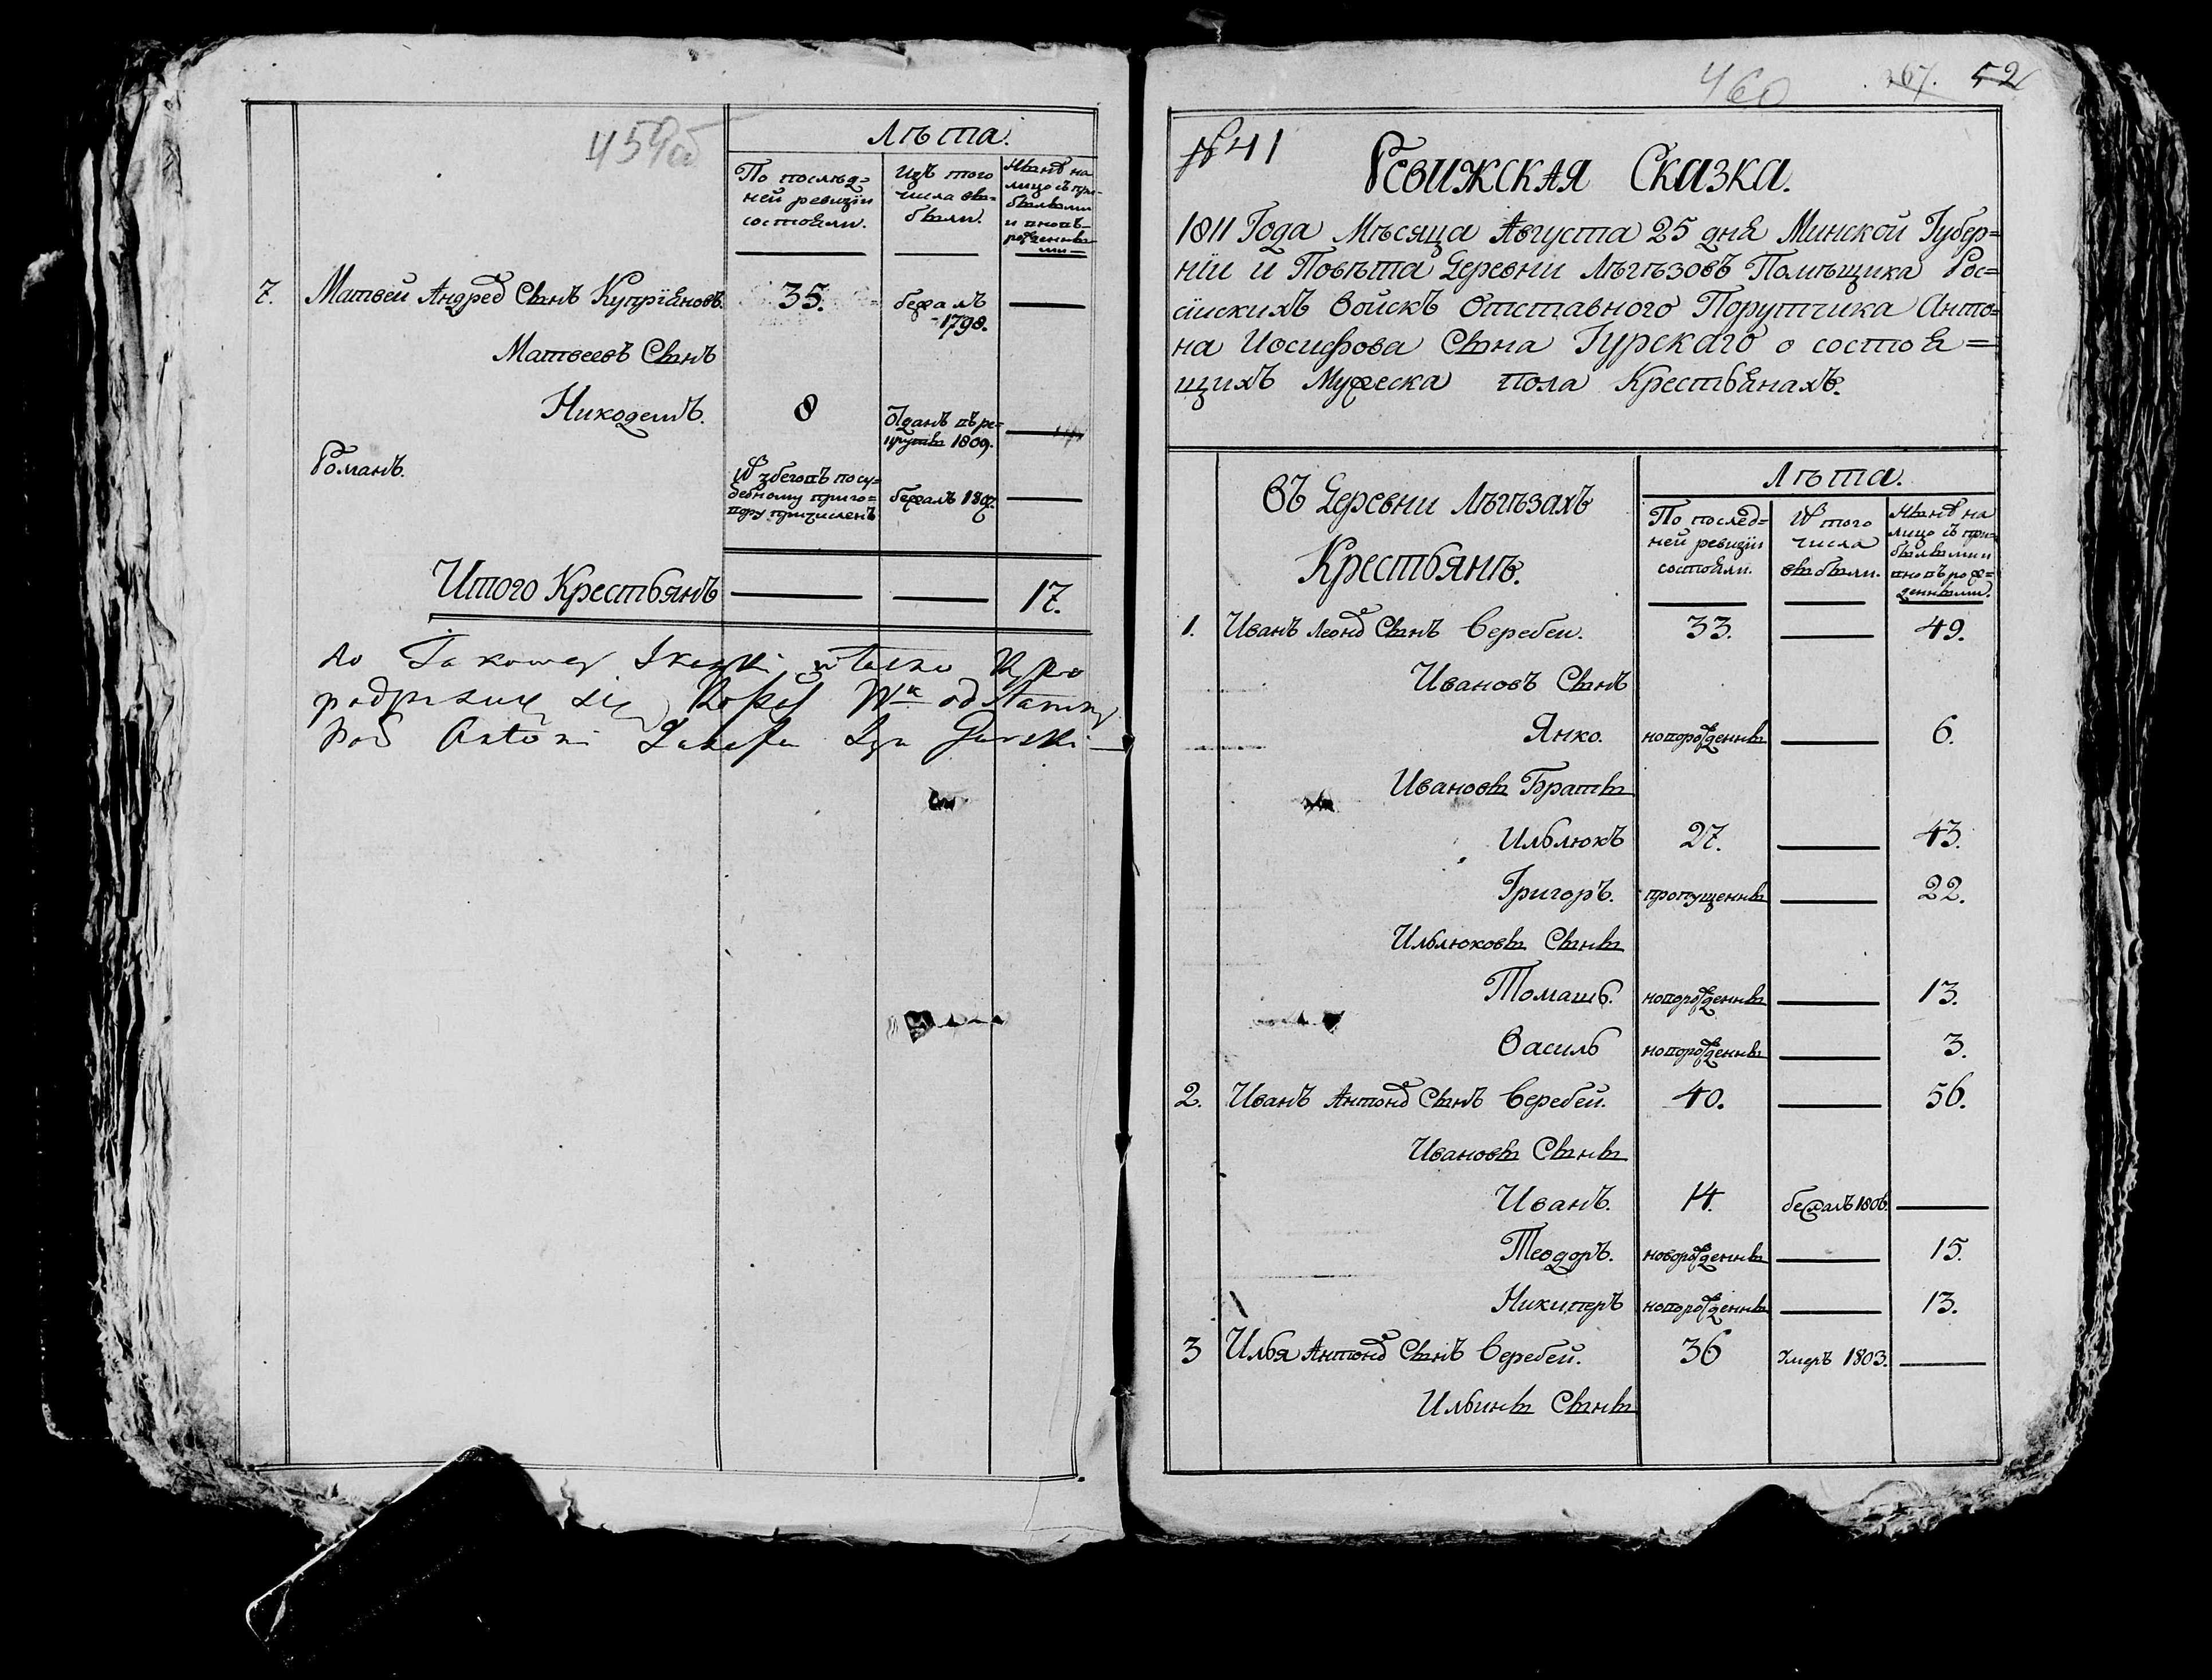 459об
Лѣта.
По послѣд=
ней ревизіи
состояли.
Изъ того
числа вы=
были.
Нынѣ на
лицо съ при=
былыми
и вновь
рожденны
ми
7. Матвей Андреев Сынъ Купріяновъ. 35. бежалъ
1798.
Матвеевъ Сынъ
Никодемъ. 8 Отданъ въ ре=
круты 1809.
Романъ. Из беговъ по су=
дебному приго=
вору причисленъ бежалъ
Итого Крестьянъ 17.
do Takowey Skazki własno Ręko
podpisuię się
Antoni Syn Gurski
460 267. 52
№ 41
Ревижская Сказка.
1811 Года Мѣсяца Августа 25 дня Минской Губер=
ніи и Повѣта Деревни Лѣгѣзовъ Помѣщика Рос=
сійскихъ Войскъ Отставного Порутчика Анто=
на Иосифова Сына Гурскаго о состоя=
щихъ Мужеска пола Крестьянахъ.
Въ Деревни Лѣгѣзахъ
Крестьянъ.
Лѣта.
По послед=
ней ревизіи
состояли.
Из того
числа
выбыли.
Нынѣ на
лицо съ при=
былыми и
вновь рож=
денными.
1. Иванъ Леонов Сынъ Веребей. 33. 49.
Ивановъ Сынъ
Янко. новорожденны 6.
Ивановы Браты
Ильлюкъ 27. 43.
Григоръ. пропущенны 22.
Ильлюковы Сыны
Томашь. новорожденны 13.
Василь новорожденны 3.
2. Иванъ Антонов Сынъ Веребей. 40. 56.
Ивановы Сыны
Иванъ. 14. бежалъ 1806.
Теодоръ. новорожденны 15.
Никиперъ новорожденны 13.
3 Илья Антонов Сынъ Веребей. 36 Умеръ 1803.
Ильины Сыны